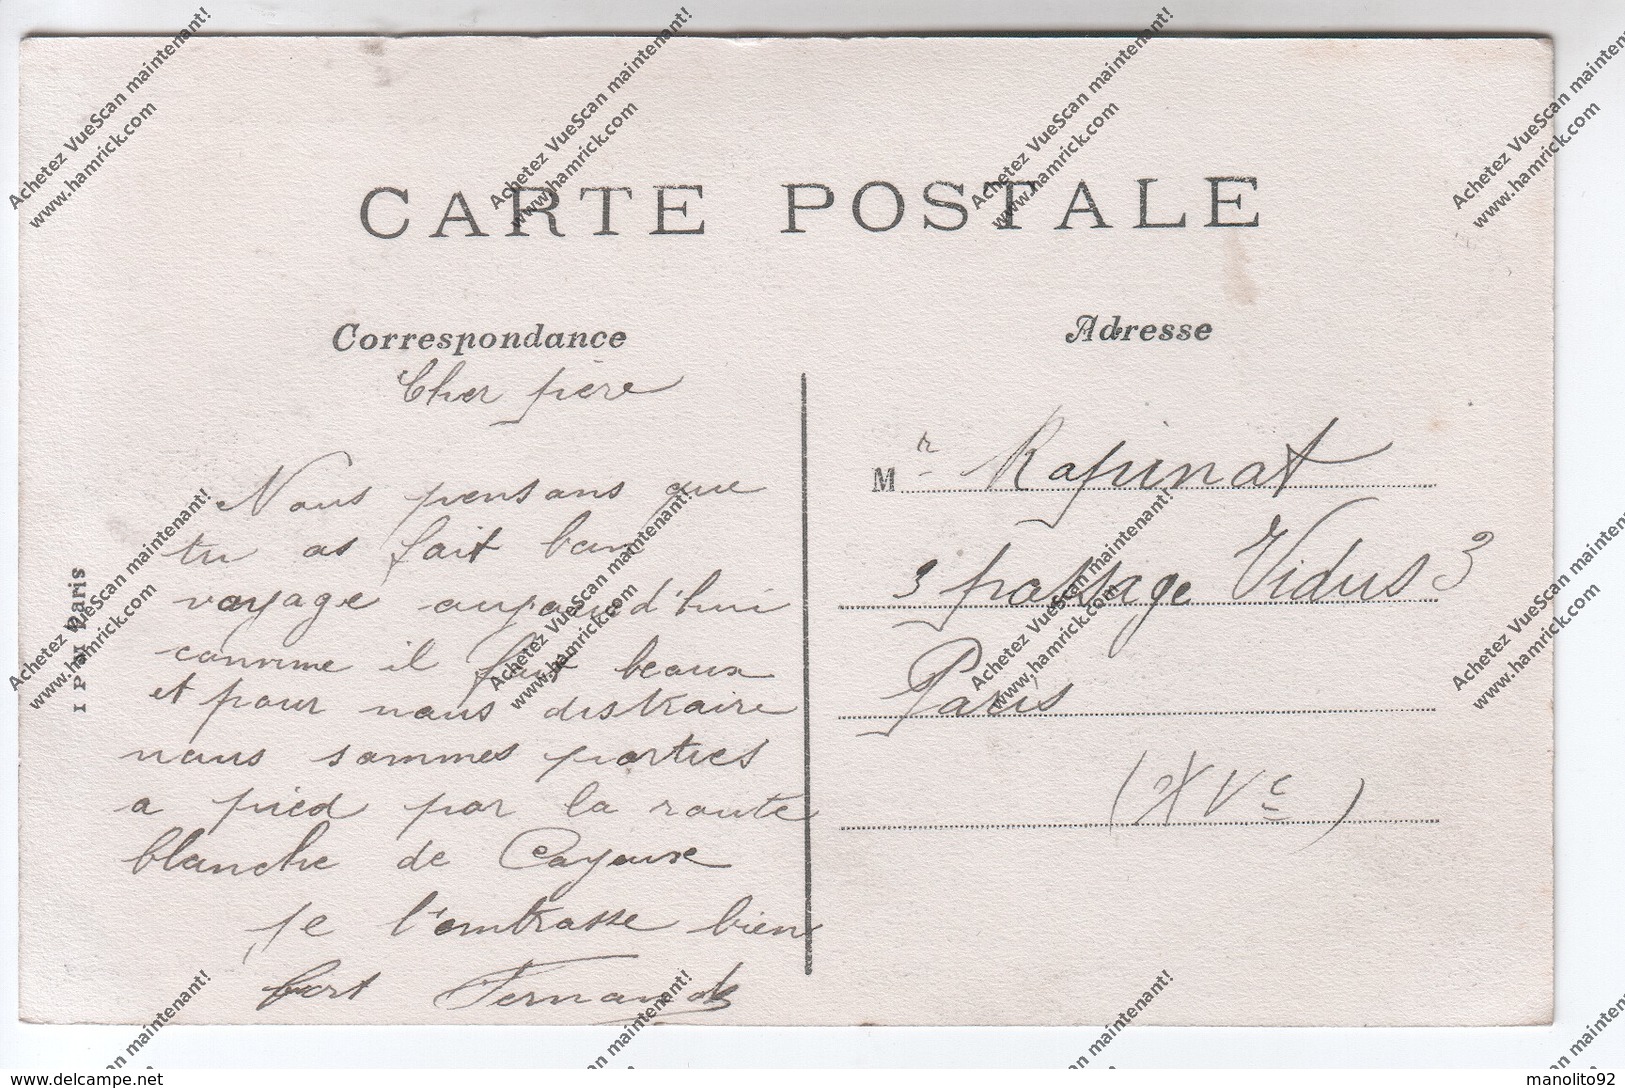 CARTE POSTALE
Correspondance
Cher père
Nous pensons que
tu as fait bon
voyage aujourd'hui
comme il fait beaux
et pour nous distraire
nous sommes parties
a pied par la route
blanche de Cayeux
je t'embrasse bien
fort Fernande
Adresse
Mr Rapinat
3 passage Vidus 3
Paris
(XVe)
Paris
Achetez VueScan maintenant!
www.hamrick.com
www.delcampe.net
manolito92